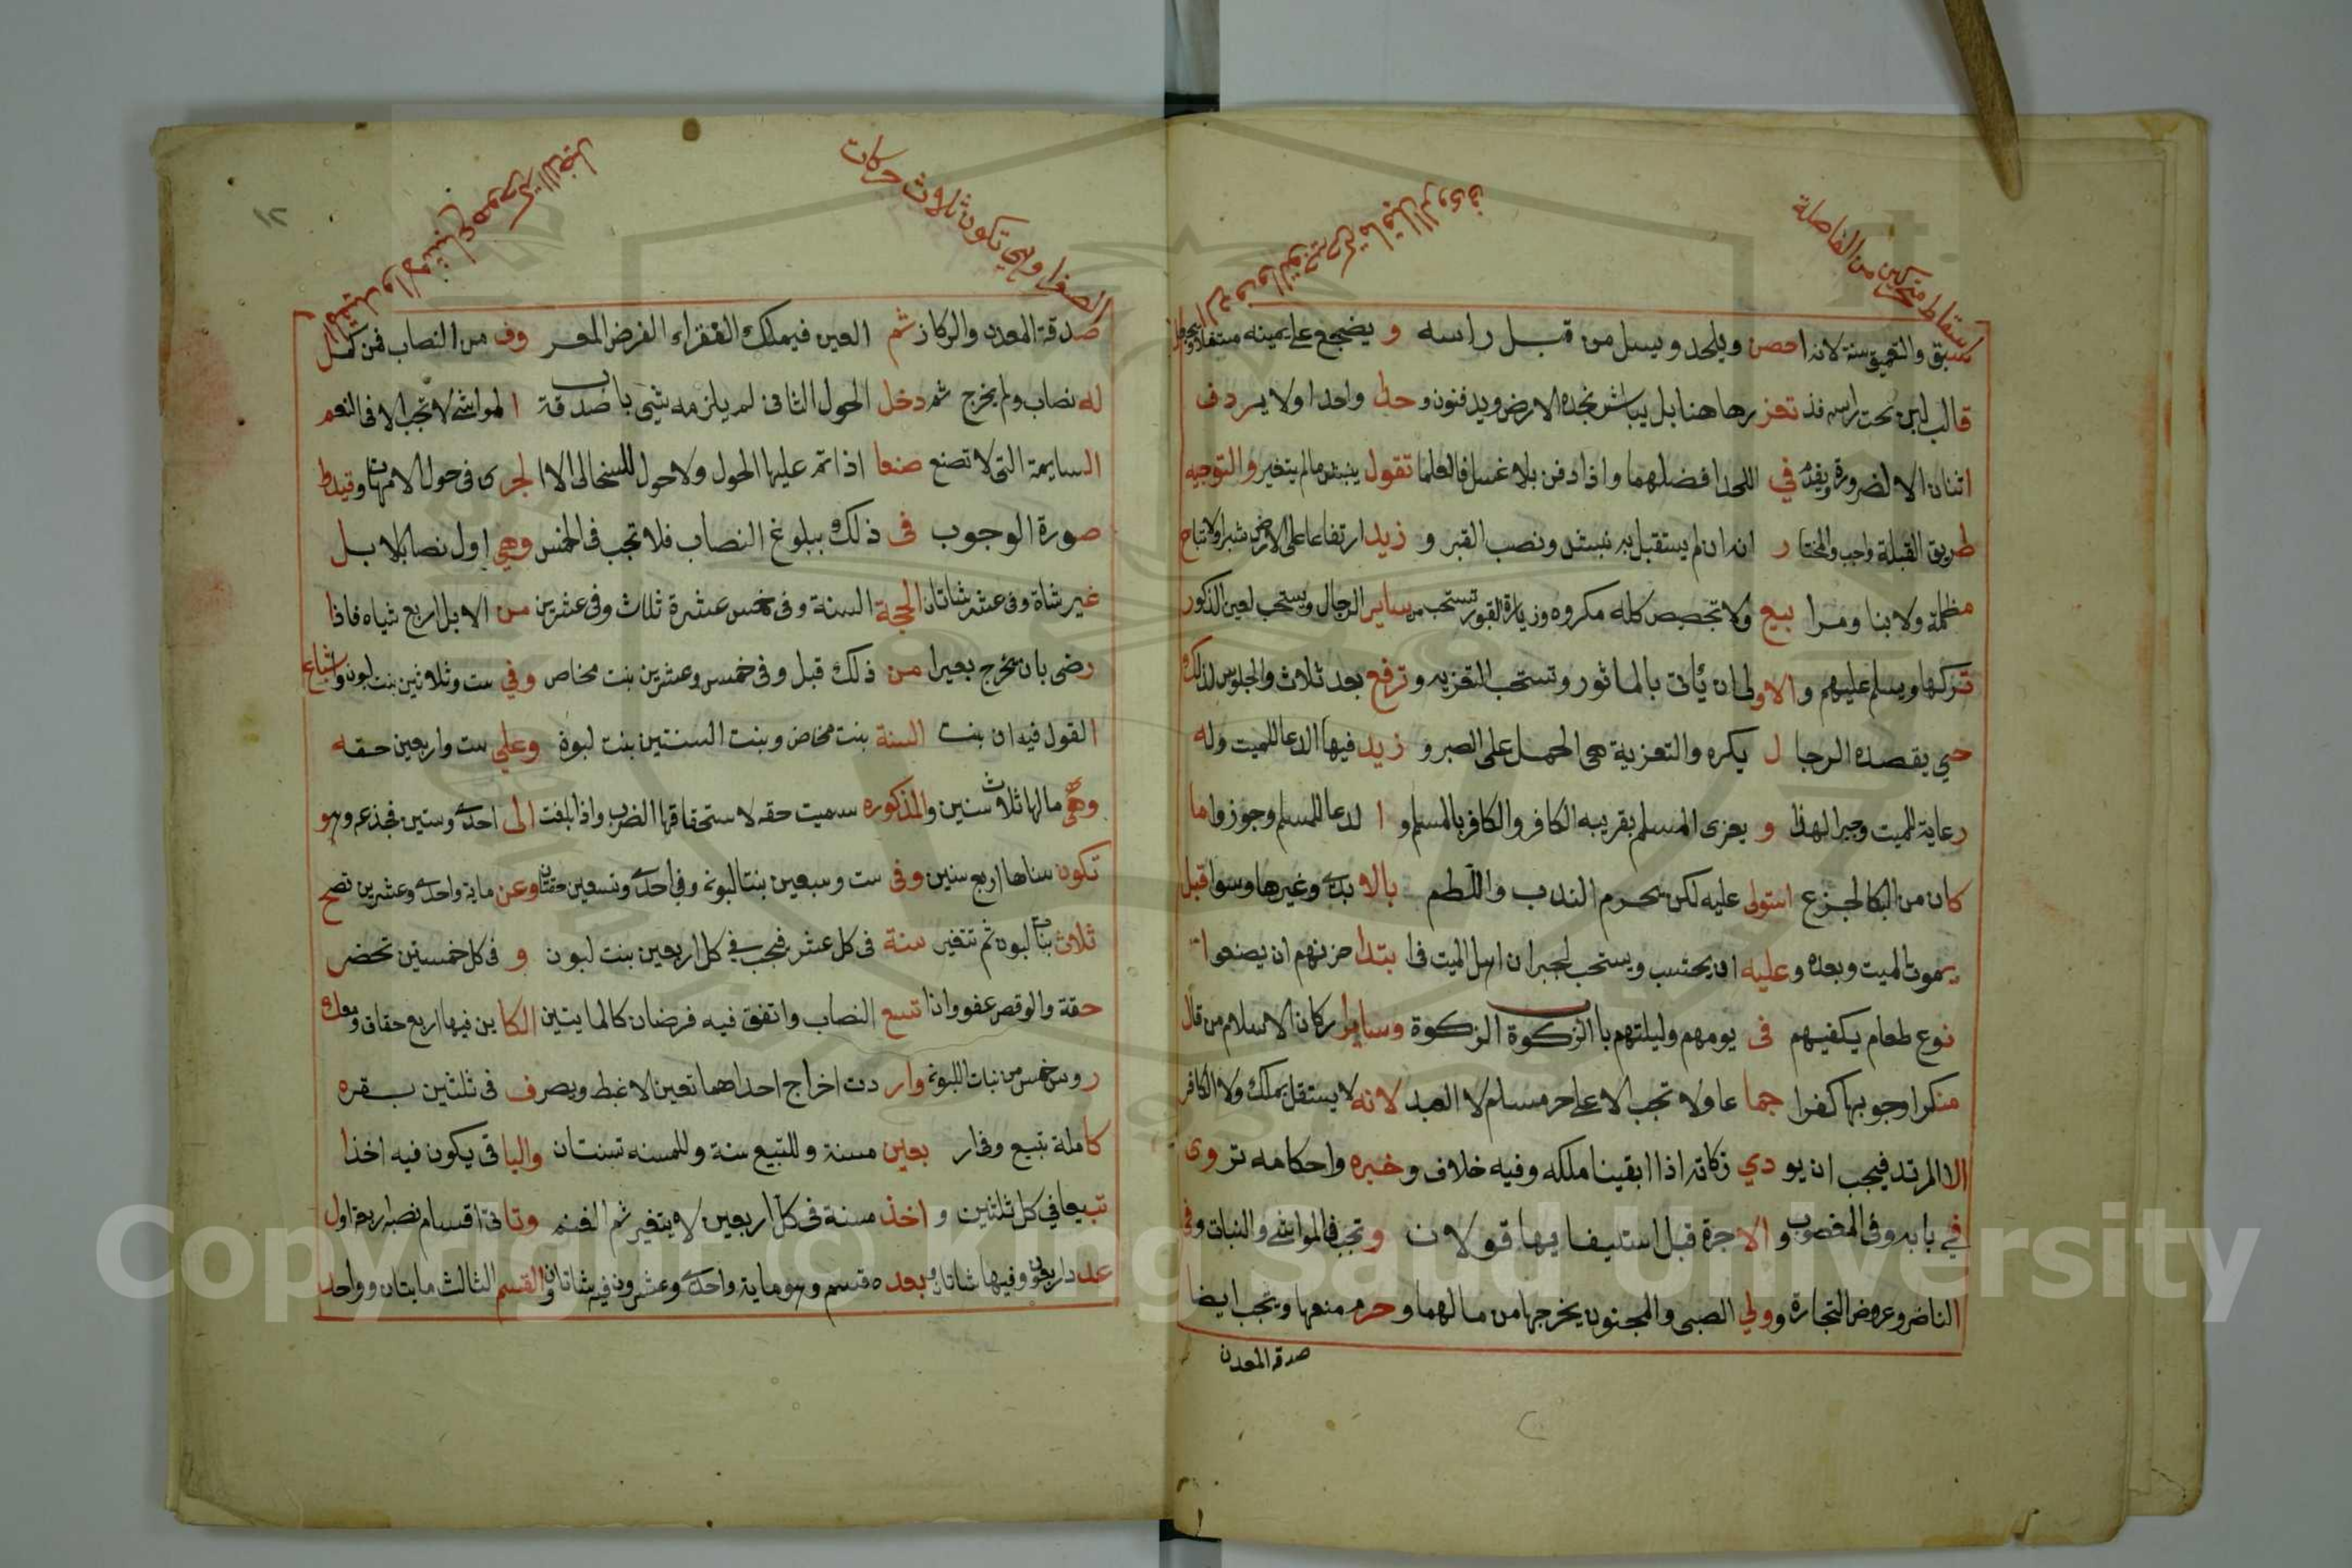 اسقاط متحركين من الفاصلة
سبق والتعميق سنة لانه احصن ويلحد ويسل من قبل راسه و يضجع على يمينه مستقبلا
قالب لبن تحت راسه فذ تعز رها هنا بل يباشر بخده الارض ويدفنون وحلي واحدا ولا يردف
اثنان الا لضرورة ويقدم في اللحد افضلهما واذا دفن بلا غسل فالعلما تقول ينبش مالم يتغير والتوجيه
طريق القبلة واجب والمختا ر انه ان لم يستقبل به نبش ونصب القبر و زيد ارتفاعا على الارض شبرا ولا تباح
مظلمة ولا بنا ومرا بيع ولا تجصيص كله مكروه وزيارة القبور تستحب من ساير الرجال ويستحب لعين الذكور
تركها ويسلم عليهم والاولى ان يأتى بالماثور وتستحب التعزيه وترفع بعد ثلاث والجلوس لذلك
حي يقصده الرجا ل يكره والتعزية هى الحمل على الصبر و زيد فيها الدعا للميت وله
رعاية للميت وجبرا لهذا و يعزى المسلم بقريبه الكافر والكافر بالمسلم و ا لدعا للمسلم وجوزوا ما
كان من البكا لجزع استولى عليه لكن يحرم الندب واللطم بالا يدى وغيرها وسوا قبل
يموت الميت وبعده وعليه ان يحتسب ويستحب لجيران اهل الميت فى ا بتدا حزنهم ان يصنعوا
نوع طعام يكفيهم فى يومهم وليلتهم باب الزكوة الزكوة وساير اركان الاسلام من قال
منكرا وجوبها كفرا جما عا ولا تجب الا على حر مسلم لا العبد لانه لا يستقل بملك ولا الكافر
الا المرتد فيجب ان يو دي زكاته اذا ابقينا ملكه وفيه خلاف وخبره واحكامه تروى
في بابه وفى المغصوب والاجرة قبل استيفا يها قولان وتجب فى المواشى والنبات وفى
الناض وعروض التجارة وولي الصبى والمجنون يخرجها من مالهما وحرم منعها ويجب ايضا
صدقه المعدن
١٢
الصغرا وهى تكون ثلاث حركات
صدقة المعدن والركاز ثم العين فيملك الفقراء الفرض المعر وف من النصاب فمن كمل
له نصاب ولم يخرج ثم دخل الحول الثانى لم يلزمه شئ باب صدقة المواشى لا تجب الا فى النعم
السايمة التى لا تصنع صنعا اذا تم عليها الحول ولا حول للسخال الا الجرى فى حول الامهات
صورة الوجوب فى ذلك ببلوغ النصاب فلا تجب فى الخمس وهي اول نصاب الابل
غير شاة وفى عشر شاتان الحجة السنة وفى خمس عشرة ثلاث وفى عشرين من الابل اربع شياه فاذا
رضى بان يخرج بعيرا من ذلك قبل وفى خمس وعشرين بنت مخاض وفي ست وثلاثين بنت لبون وشاع
القول فيه ان بنت السنة بنت مخاض وبنت السنتين بنت لبون وعلي ست واربعين حقه
وهي مالها ثلاث سنين والمذكوره سميت حقه لاستحقاقها الضرب واذا بلغت الى احدى وستين فجذعه وهو
تكون سناها اربع سنين وفى ست وسبعين بنتا لبون وفى احدى وتسعين حقتان وعن ماية واحدى وعشرين تصح
ثلاث بنات لبون ثم تتغير سنة فى كل عشر فيجب في كل اربعين بنت لبون و فى كل خمسين تحضر
حقة والوقص عفو واذا تسع النصاب واتفق فيه فرضان كالمايتين الكا ين فيها اربع حقاق
روس خمس من بنات اللبون وار دت اخراج احداهما تعين الاغبط ويصرف فى ثلثين بقره
كاملة تبيع وفى ار بعين مسنة وللتبيع سنة وللمسنه سنتان والبا قى يكون فيه اخذا
تبيعا في كل ثلثين و اخذ مسنة فى كل اربعين لا يتغير ثم الغنم وتا تى اقسام نصبها اربعة اول
عدد اربعون وفيها شاة وبعده قسم وهو ماية واحدى وعشرون فيه شاتان والقسم الثالث مايتان وواحد